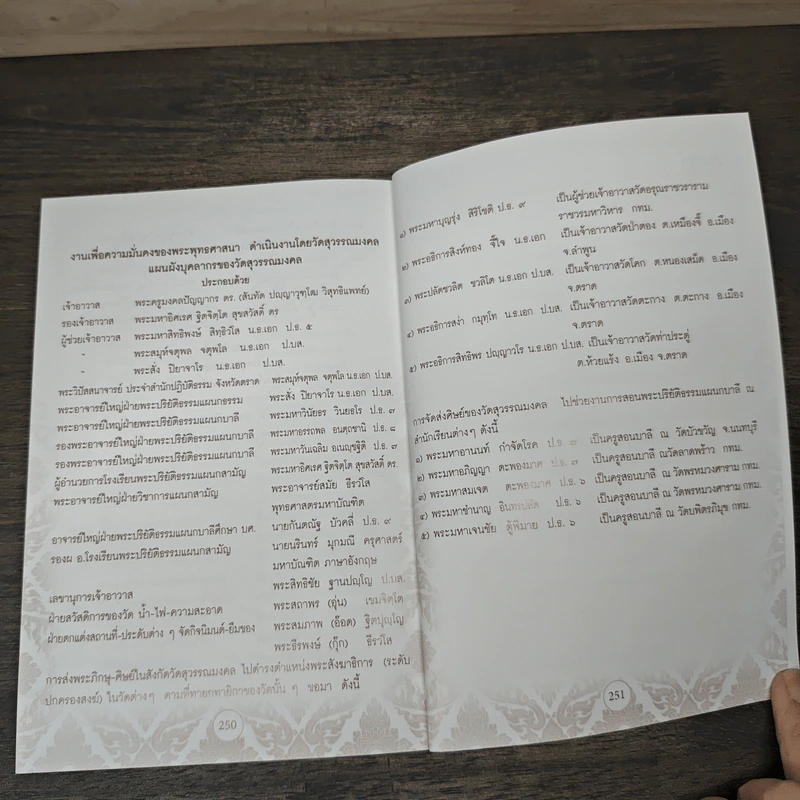 งานเพื่อความมั่นคงของพระพุทธศาสนา ดำเนินงานโดยวัดสุวรรณมงคล
แผนผังบุคลากรของวัดสุวรรณมงคล
ประกอบด้วย
เจ้าอาวาส พระครูมงคลปัญญากร ดร. (สันทัด ปญฺญาวุฑฺโฒ วิสุทธิแพทย์)
รองเจ้าอาวาส พระมหาอิศเรศ ฐิตจิตฺโต สุขสวัสดิ์ ดร
ผู้ช่วยเจ้าอาวาส พระมหาสิทธิพงษ์ สิทฺธิวํโส น.ธ.เอก ป.ธ. ๕
" พระสมุห์จตุพล จตุพโล น.ธ.เอก ป.บส.
" พระสั่ง ปิยาจาโร น.ธ.เอก ป.บส.
พระวิปัสสนาจารย์ ประจำสำนักปฏิบัติธรรม จังหวัดตราด พระสมุห์จตุพล จตุพโล น.ธ.เอก ป.บส.
พระอาจารย์ใหญ่ฝ่ายพระปริยัติธรรมแผนกธรรม พระสั่ง ปิยาจาโร น.ธ.เอก ป.บส.
พระอาจารย์ใหญ่ฝ่ายพระปริยัติธรรมแผนกบาลี พระมหาวินัยธร วินยธโร ป.ธ. ๗
รองพระอาจารย์ใหญ่ฝ่ายพระปริยัติธรรมแผนกบาลี พระมหาอรรถพล อนตฺถชานิ ป.ธ. ๘
รองพระอาจารย์ใหญ่ฝ่ายพระปริยัติธรรมแผนกบาลี พระมหาวันเฉลิม ป.ธ. ๗
ผู้อำนวยการโรงเรียนพระปริยัติธรรมแผนกสามัญ พระมหาอิศเรศ ฐิตจิตฺโต สุขสวัสดิ์ ดร.
พระอาจารย์ใหญ่ฝ่ายวิชาการแผนกสามัญ พระอาจารย์สมัย ธีรวํโส
พุทธศาสตรมหาบัณฑิต
อาจารย์ใหญ่ฝ่ายพระปริยัติธรรมแผนกบาลีศึกษา บศ. นายกันตณัฐ บัวคลี่ ป.ธ. ๙
รองผ อ.โรงเรียนพระปริยัติธรรมแผนกสามัญ นายนรินทร์ มุกมณี ครุศาสตร์
มหาบัณฑิต ภาษาอังกฤษ
เลขานุการเจ้าอาวาส พระสิทธิชัย ฐานปญฺโญ ป.บส.
ฝ่ายสวัสดิการของวัด น้ำ-ไฟ-ความสะอาด พระสถาพร (อุ่น) เขมจิตฺโต
ฝ่ายตกแต่งสถานที่-ประดับต่าง ๆ จัดกิจนิมนต์-ยืมของ พระสมภาพ (อ๊อด) ฐิตปุญฺโญ
พระธีรพงษ์ (กุ๊ก) ธีรวํโส
การส่งพระภิกษุ-ศิษย์ในสังกัดวัดสุวรรณมงคล ไปดำรงตำแหน่งพระสังฆาธิการ (ระดับ
ปกครองสงฆ์) ในวัดต่างๆ ตามที่ทายกทายิกาของวัดนั้น ๆ ขอมา ดังนี้
250
๑) พระมหาบุญรุ่ง สิริโชติ ป.ธ. ๙ เป็นผู้ช่วยเจ้าอาวาสวัดอรุณราชวราราม
ราชวรมหาวิหาร กทม.
๒) พระอธิการสิงห์ทอง จี๋ใจ น.ธ.เอก เป็นเจ้าอาวาสวัดป่าตอง ต.เหมืองจี้ อ.เมือง
จ.ลำพูน
๓) พระปลัดชวลิต ชวลิโต น.ธ.เอก ป.บส. เป็นเจ้าอาวาสวัดโคก ต.หนองเสม็ด อ.เมือง
จ.ตราด
๔) พระอธิการสง่า กมฺุทโท น.ธ.เอก ป.บส. เป็นเจ้าอาวาสวัดตะกาง ต.ตะกาง อ.เมือง
จ.ตราด
๕) พระอธิการสิทธิพร ปญฺญาวโร น.ธ.เอก ป.บส. เป็นเจ้าอาวาสวัดท่าประดู่
ต.ห้วยแร้ง อ.เมือง จ.ตราด
การจัดส่งศิษย์ของวัดสุวรรณมงคล ไปช่วยงานการสอนพระปริยัติธรรมแผนกบาลี ณ
สำนักเรียนต่างๆ ดังนี้
๑) พระมหาอานนท์ กำจัดโรค ป.ธ. ๗ เป็นครูสอนบาลี ณ วัดบัวขวัญ จ.นนทบุรี
๒) พระมหาอภิญญา ตะพองมาศ ป.ธ. ๗ เป็นครูสอนบาลี ณวัดลาดพร้าว กทม.
๓) พระมหาสมเจต ตะพองมาศ ป.ธ. ๖ เป็นครูสอนบาลี ณ วัดพรหมวงศาราม กทม.
๔) พระมหาชำนาญ อินทรปลัด ป.ธ. ๖ เป็นครูสอนบาลี ณ วัดพรหมวงศาราม กทม.
๕) พระมหาเจนชัย ตู้พิมาย ป.ธ. ๖ เป็นครูสอนบาลี ณ วัดบพิตรภิมุข กทม.
251